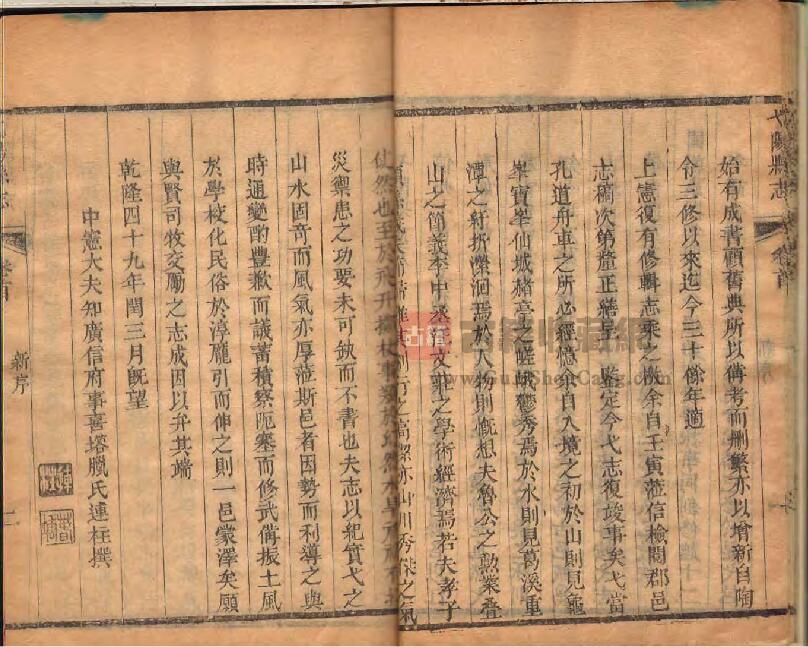 始有成書顧舊典所以傳考而刪繁亦以增新自陶
令三修以來迄今三十餘年適
上憲復有修輯志乘之檄余自壬寅蒞信檢閱郡邑
志稿次第釐正繕呈 鑒定今弋志復竣事矣弋當
孔道舟車之所必經憶余自入境之初於山則見龜
峯寶峯仙城赭亭之嵯峨鬱秀焉於水則見葛溪重
潭之紆折瀠洄焉於人物則慨想夫魯公之勳業疊
山之節義李中丞 文 之學術經濟焉若夫孝子
之高潔亦山川秀傑之氣
使然也至於
災禦患之功要未可缺而不書也夫志以紀實弋之
山水固奇而風氣亦厚蒞斯邑者因勢而利導之與
時通變酌豊歉而議蓄積察阨塞而修武備振士風
於學校化民俗於淳龐引而伸之則一邑蒙澤矣願
與賢司牧交勵之志成因以弁其端
乾隆四十九年閏三月旣望
中憲大夫知廣信府事喜塔臘氏連柱撰
弋陽縣志
卷首
新序
一
古籍收藏網
www.GujiShouCang.com